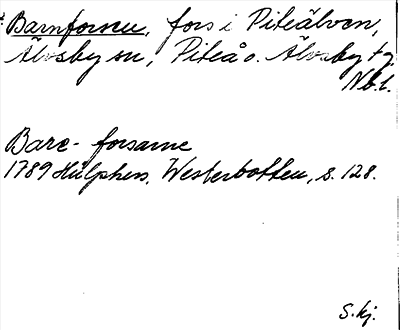 Barnforsen, fors i Piteälven,
Älvsby sn, Piteå o. Älvsby tg
Nb.l.
Bare-forsarne
1789 Hülphers, Westerbotten, s. 128.
S. kj.